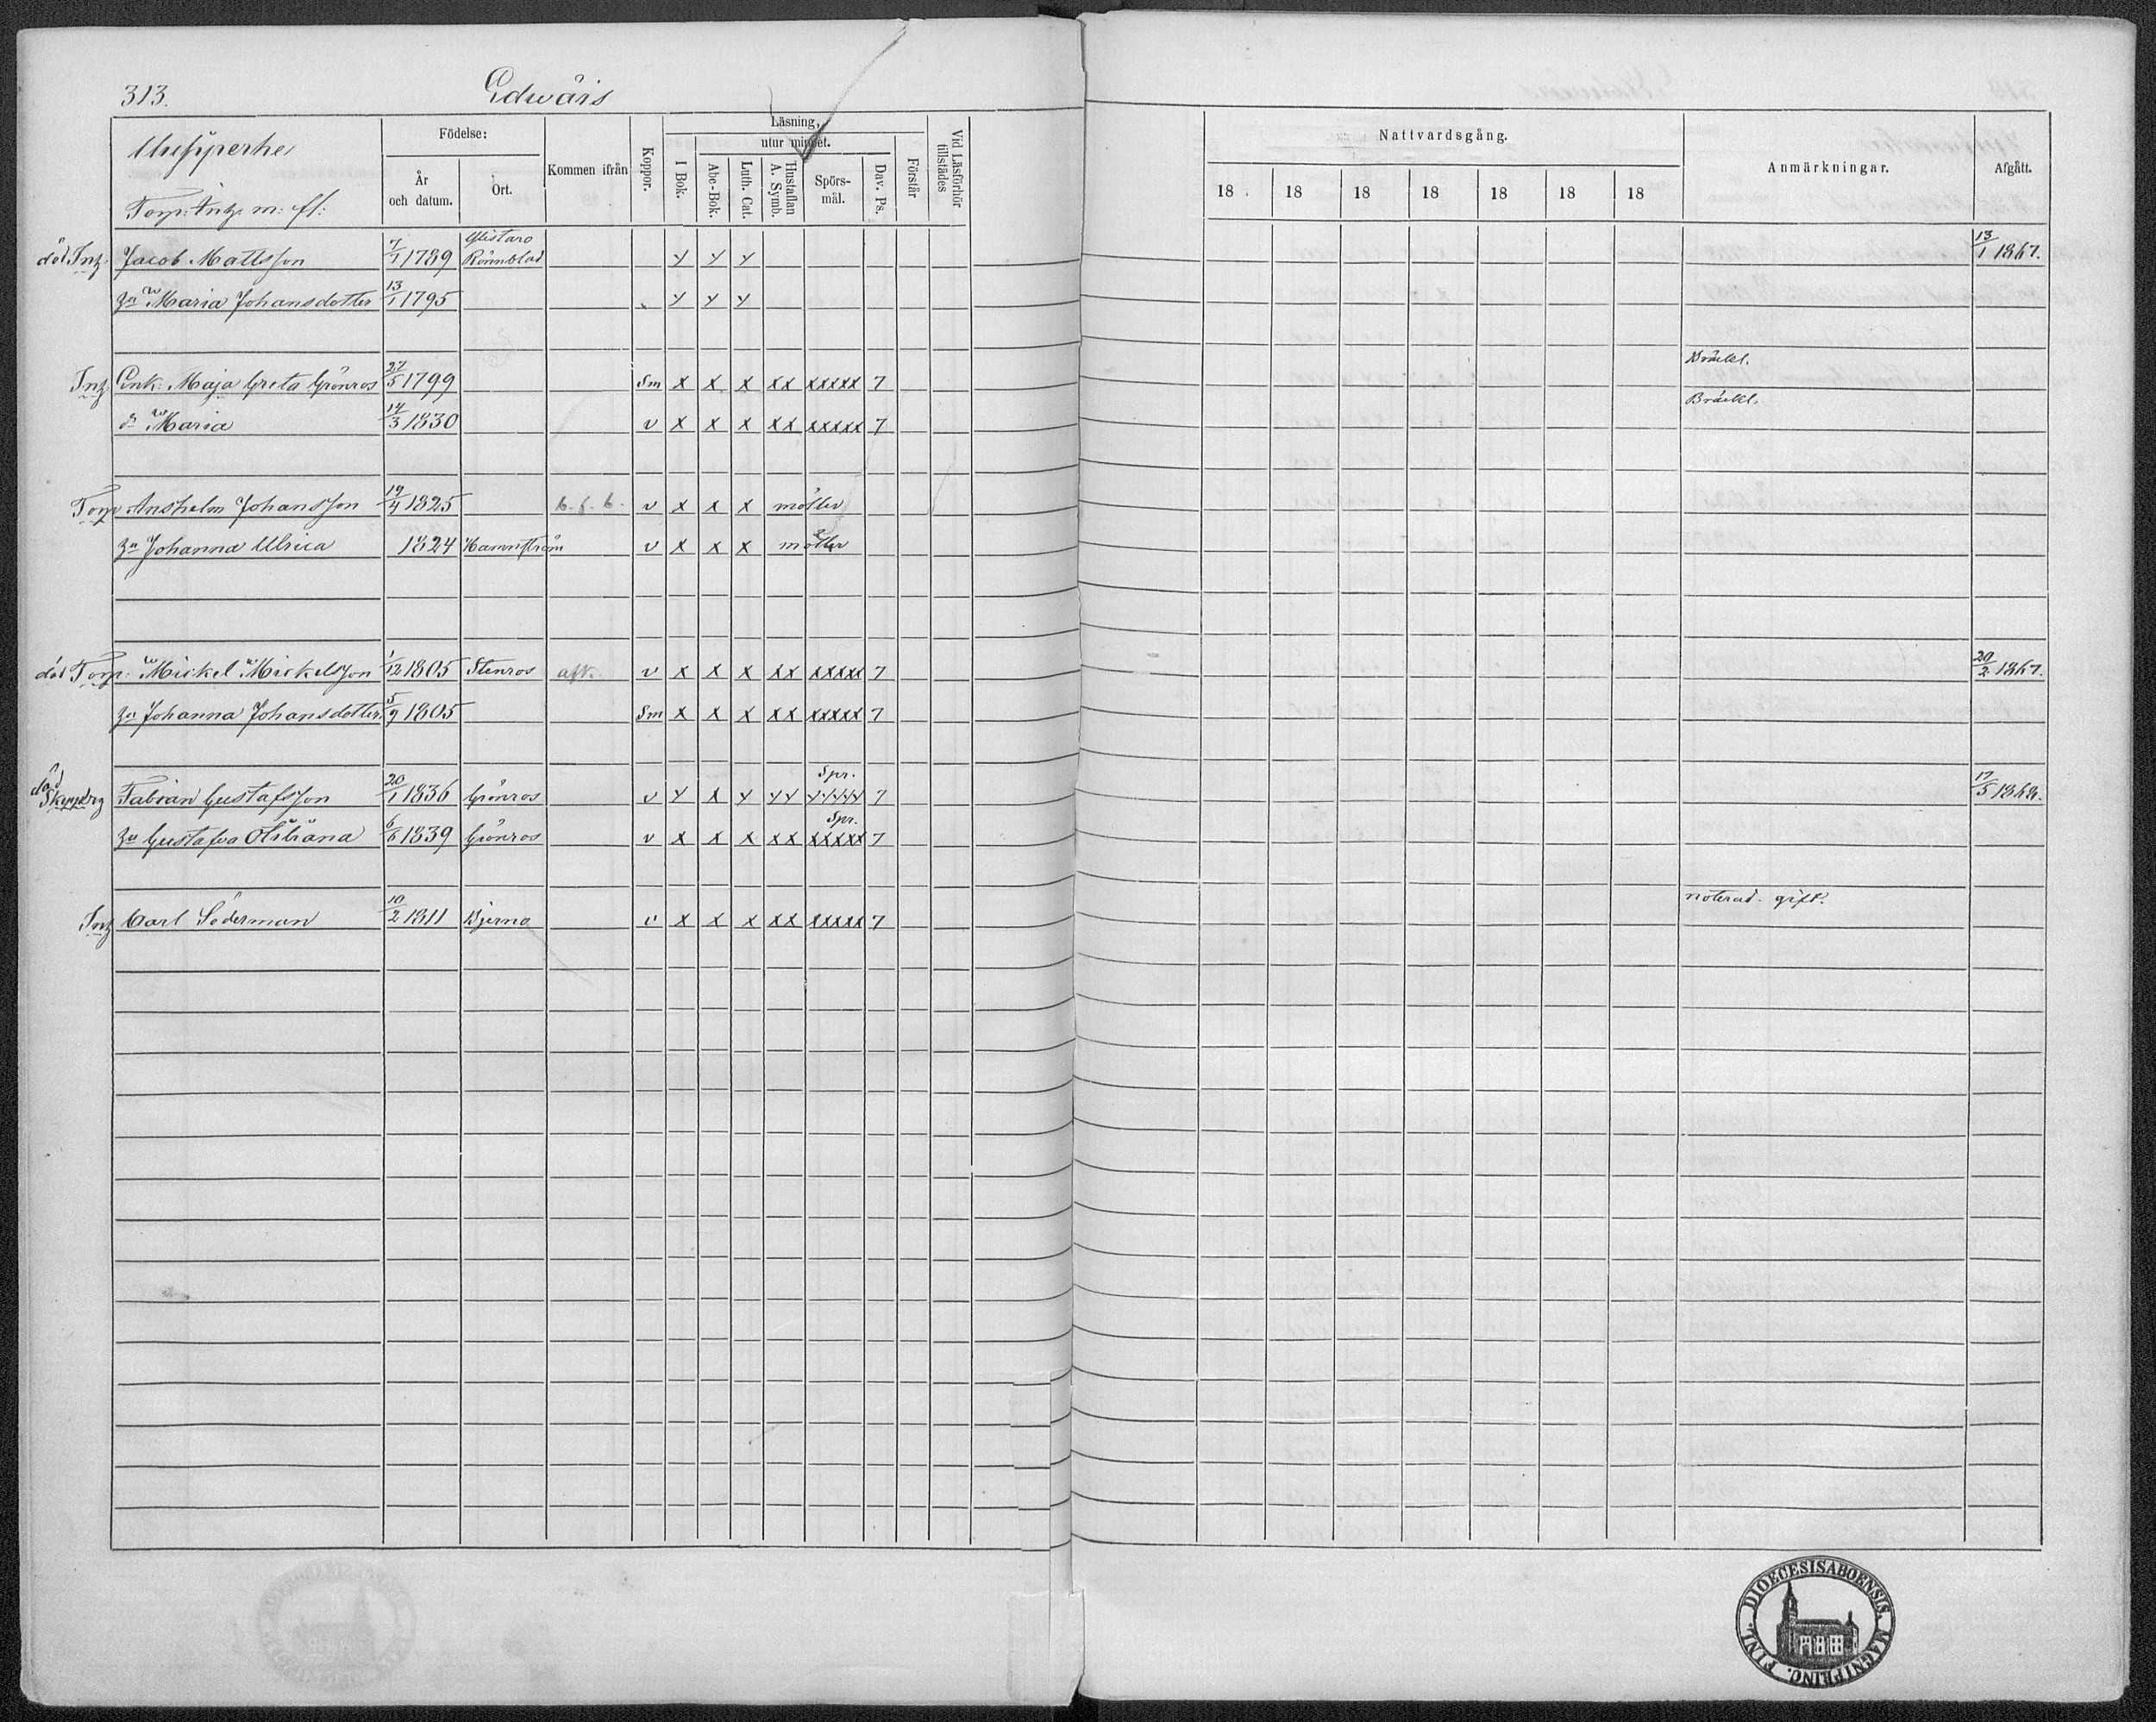 313. Edwärs
Födelse: Läsning, Nattvardsgång.
utur minnet.
År och datum. Ort. Kommen ifrån Koppor. I Bok. Abc-Bok. Luth. Cat. Hustaflan A. Symb. Spörs-mål. Dav. Ps. Förstår Vid Läsförhör tillstädes 18 18 18 18 18 18 18 Anmärkningar. Afgått.
Torp: Inh: m: fl:
död Inh: Jacob Mattsson 7/1 1789 Rönnblad y y y 13/1 1867.
Maria Johansdotter 13/1 1795 y y y
Bräckl.
Inh: Enk: Maja Greta Grönros 27/5 1799 Sm x x x xx xxxxx 7
Bräckl.
dr Maria 14/3 1830 v x x x xx xxxxx 7
Torp Anshelm Johansson 19/4 1825 b. f. b. v x x x
Johanna Ulrica 1824 Hammström v x x x
död Torp: Mickel Mickelsson 1/12 1805 Stenros v x x x xx xxxxx 7 20/2 1867.
Johanna Johansdotter 5/9 1805 Sm x x x xx xxxxx 7
Spr.
död Fabian Gustafsson 20/1 1836 Grönros v y x y yy yyyyy 7 17/5 1868.
Spr.
Gustafva 6/6 1839 Grönros v x x x xx xxxxx 7
noterad. gift.
Inh Carl Söderman 10/2 1811 Bjerno v x x x xx xxxxx 7
DIOECESIS ABOENSIS. MAGNI PRINC. FINL.